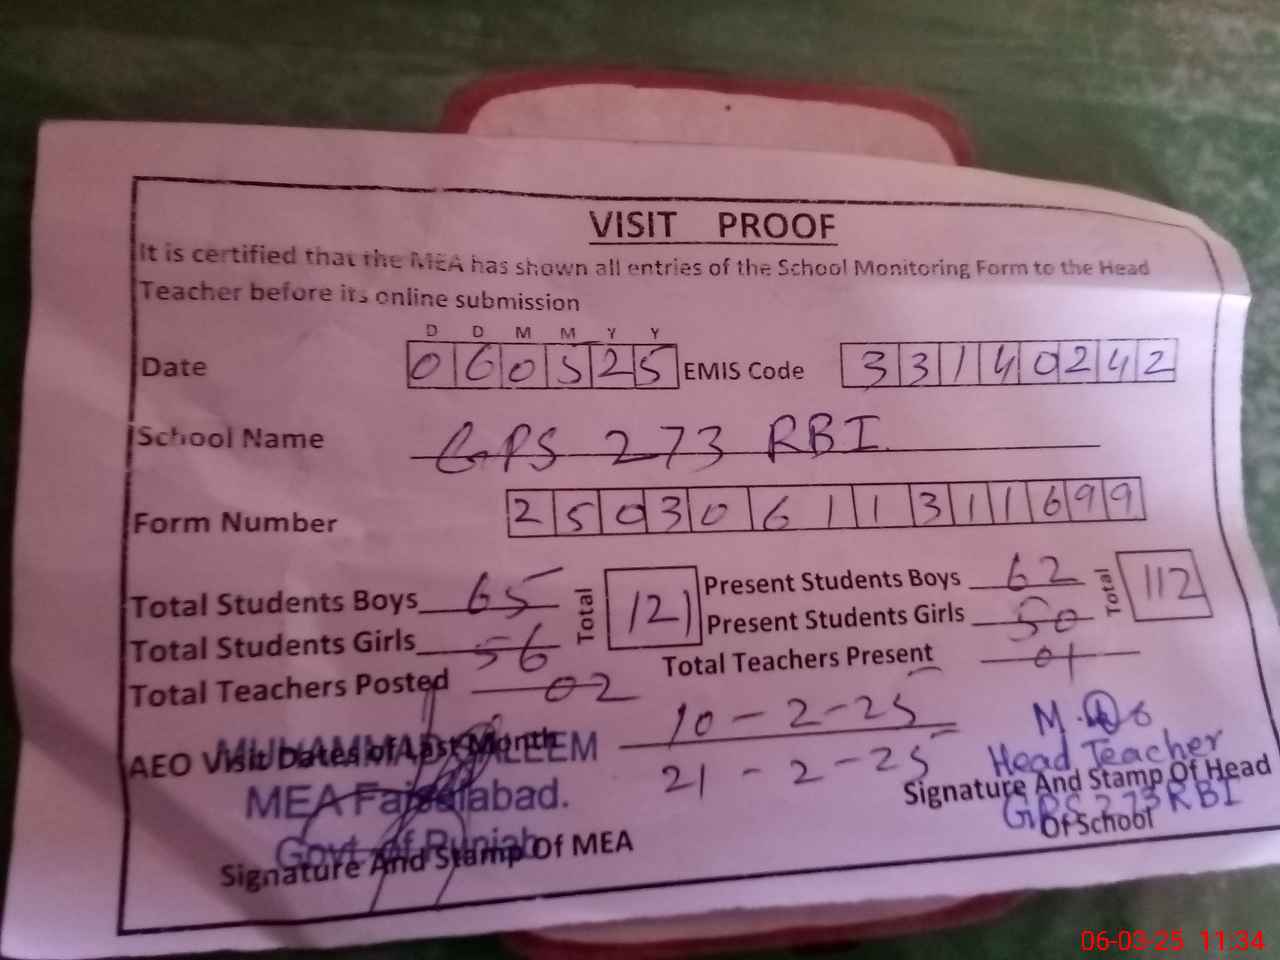 VISIT PROOF
It is certified that the MEA has shown all entries of the School Monitoring Form to the Head
Teacher before its online submission
D D M M Y Y
Date 060525 EMIS Code 33140242
School Name GPS 273 RBI
Form Number 25030611311699
Total Students Boys 65 Total 121 Present Students Boys 62 Total 112
Total Students Girls 56 Present Students Girls 50
Total Teachers Posted 02 Total Teachers Present 01
AEO Visit Dates of Last Month 10-2-25
21-2-25
MUHAMMAD SALEEM
MEA Faisalabad.
Govt. of Punjab
Signature And Stamp Of MEA
Head Teacher
GPS 273 RBI
Signature And Stamp Of Head
Of School
06-03-25 11:34